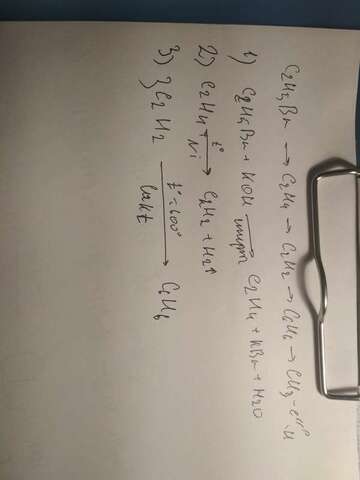 C2H5Br → C2H4 → C2H2 → C6H6 → CH3-C
1) C2H5Br + KOH спирт → C2H4 + KBr + H2O
2) C2H4 t° Ni → C2H2 + H2↑
3) 3C2H2 t°=600° Cакt → C6H6